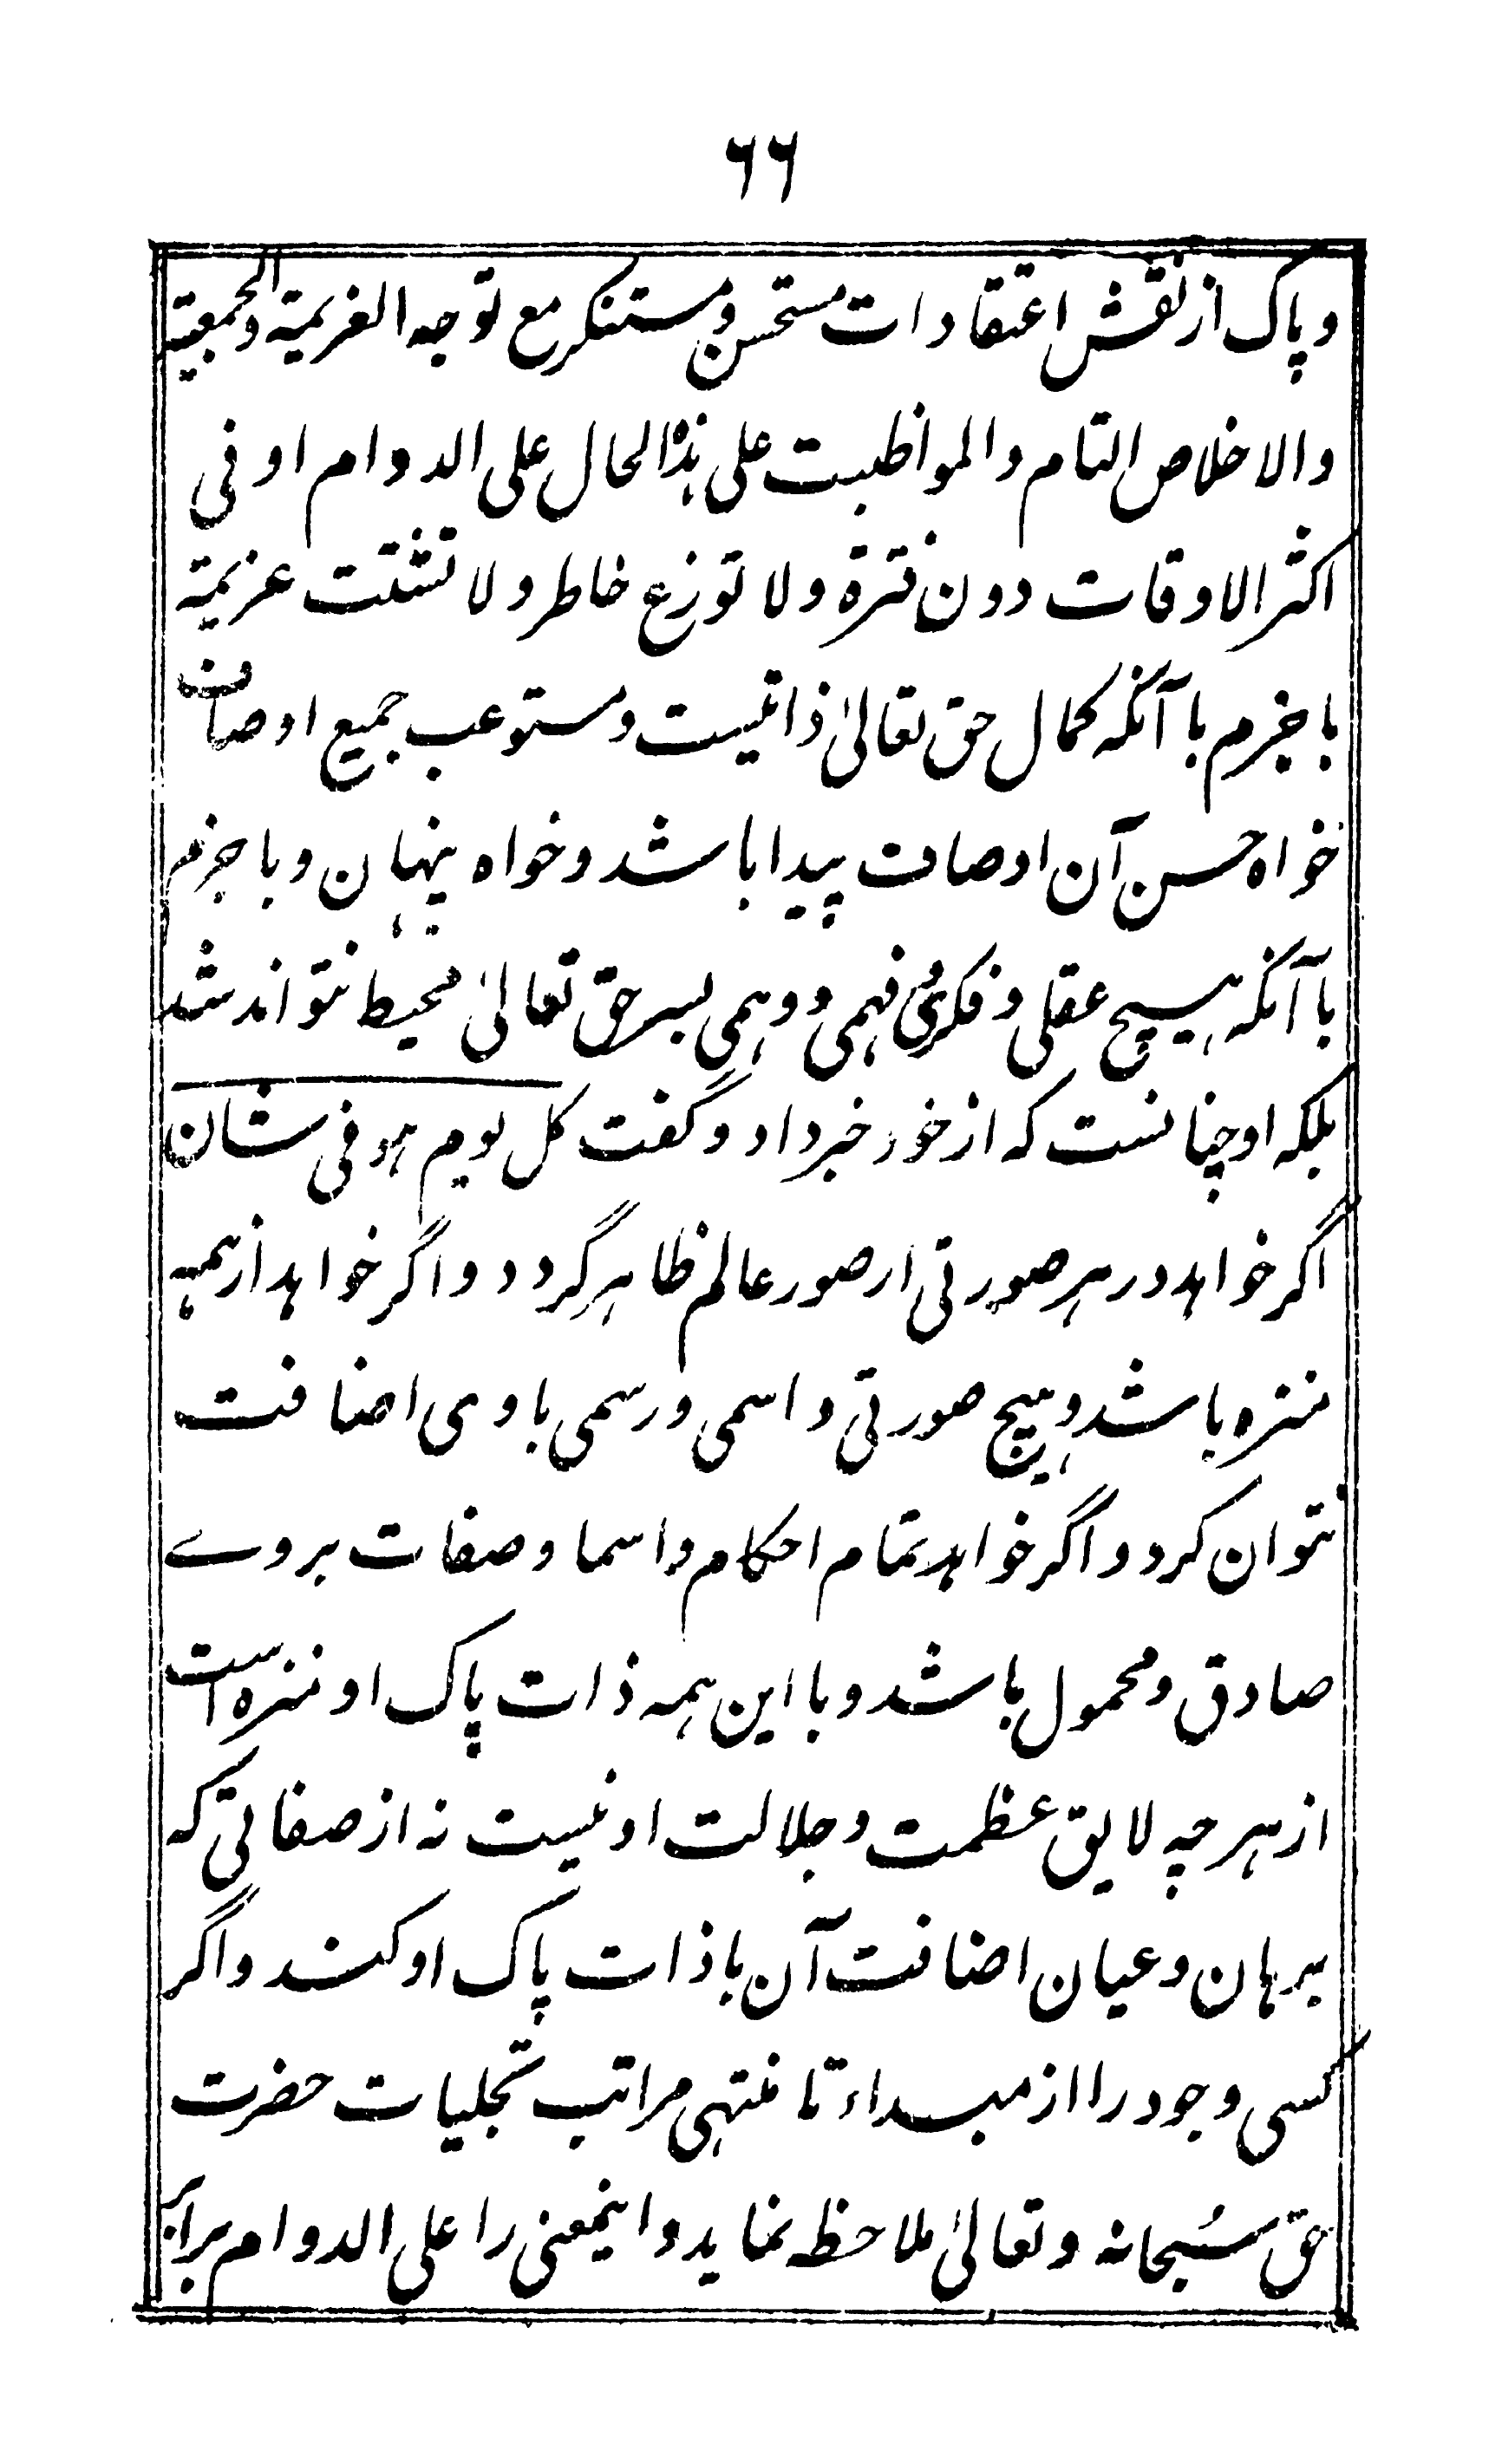 ۶۶
و پاک از نقش اعتقادات مستحسن و مستنکر مع توجه العزیمة و الجمعیة
والاخلاص التام والمواظبت علی هذا الحال علی الدوام او فی
اکثر الاوقات دون فترة ولا توزع خاطر ولا تشتت عزیمة
با جزم با آنکه کمال حق تعالیٰ ذاتیست و مستوعب جمیع اوصاف
خواه حسن آن اوصاف پیدا باشد و خواه پنهان و با جزم
با آنکه هیچ عقلی و فکری و فهمی و وهمی بسر حق تعالیٰ محیط نتواند شد
بلکه او چنانست که از خود خبر داد و گفت کل یوم هو فی شان
اگر خواهد در هر صورتی از صور عالم ظاهر گردد و اگر خواهد از همه
منزه باشد و هیچ صورتی و اسمی و رسمی با وی اضافت
نتوان کرد و اگر خواهد تمام احکام و اسما و صفات بروے
صادق و محمول باشد و با این همه ذات پاک او منزه است
از هر چه لایق عظمت و جلالت او نیست نه از صفاتی که
برهان و عیان اضافت آن با ذات پاک او کنند و اگر
کسی وجود را از مبداء تا منتهی مراتب تجلیات حضرت
حق سُبحانه و تعالیٰ ملاحظه نماید و اینمعنی را علی الدوام برابر